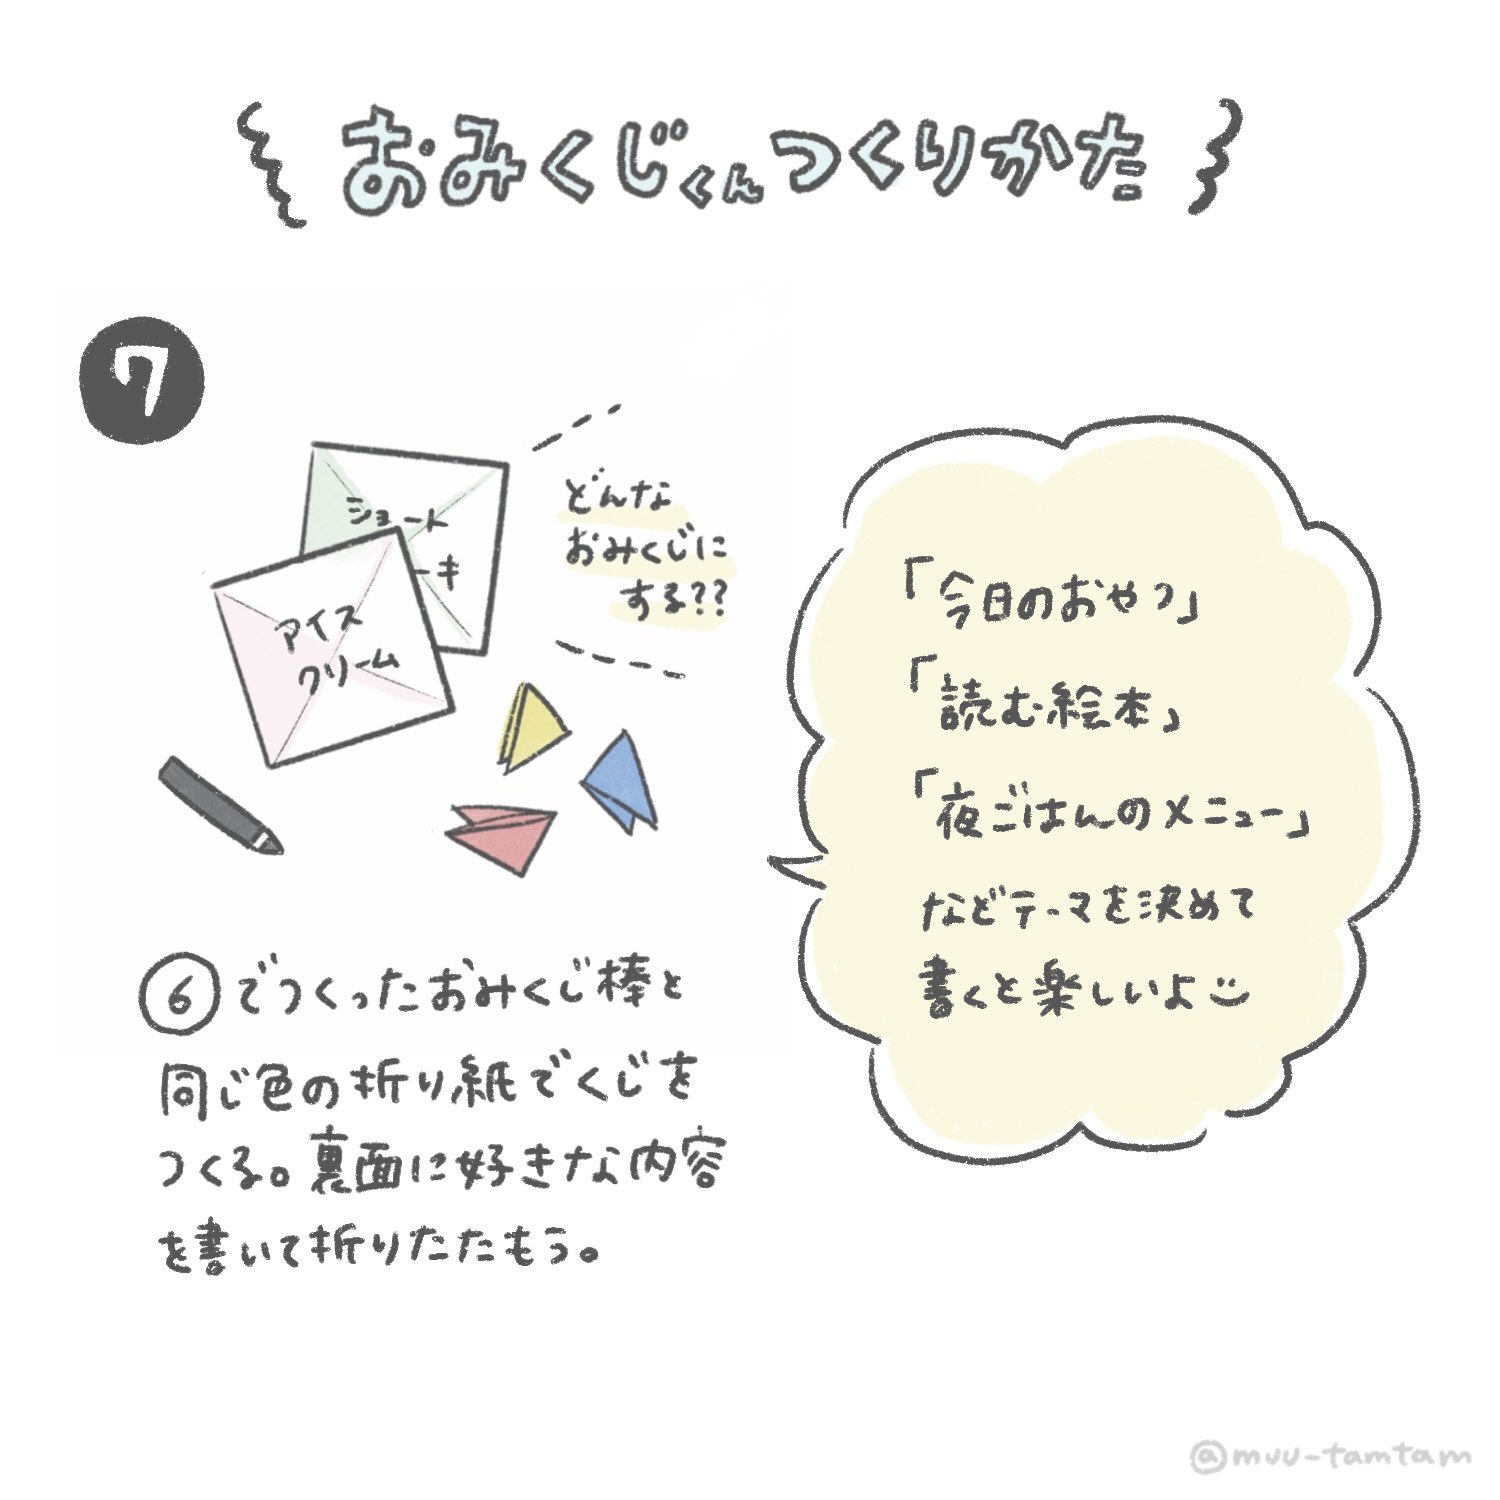 おみくじくんつくりかた
7
ショート
ーキ
アイス
クリーム
どんな
おみくじに
する??
「今日のおやつ」
「読む絵本」
「夜ごはんのメニュー」
などテーマを決めて
書くと楽しいよ
⑥でつくったおみくじ棒と
同じ色の折り紙でくじを
つくる。裏面に好きな内容
を書いて折りたたもう。
@muu-tamtam